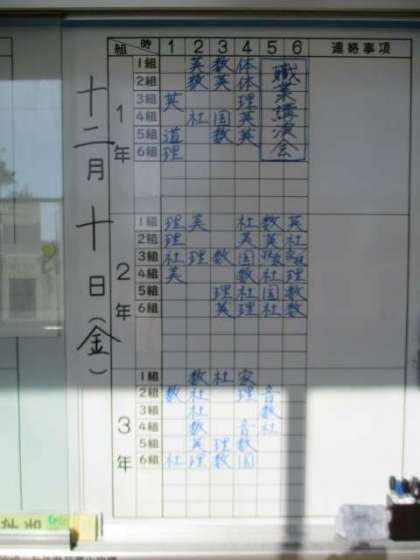 十二月十日（金）
組 時 1 2 3 4 5 6 連絡事項
1年
1組 英 数 体
2組 数 英 体
3組 英 理
4組 社 国 英
5組 道 数 英
6組 理
職業講演会
2年
1組 理 英 社 数 英
2組 理 英 英 社
3組 社 理 数 国
4組 英 数 社 理
5組 理 社 国 数
6組 英 理 社 数
3年
1組 数 社 家
2組 数 社 理 音
3組 社 数
4組 数 音 社
5組 英 理 数
6組 社 理 数 国